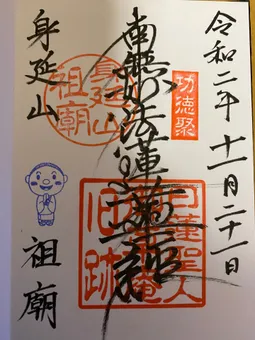 令和二年十一月二十一日
功徳聚
南無妙法蓮華経
身延山
祖廟
日蓮聖人
草庵
旧跡
身延山
祖廟